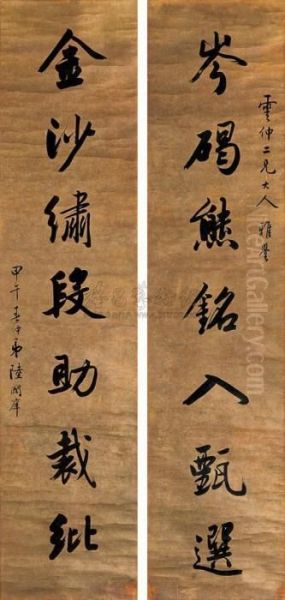 岑碣熊銘入甄選
雲仲二兄大人 雅鑒
金沙繡段助裁紕
甲午 弟陸潤庠